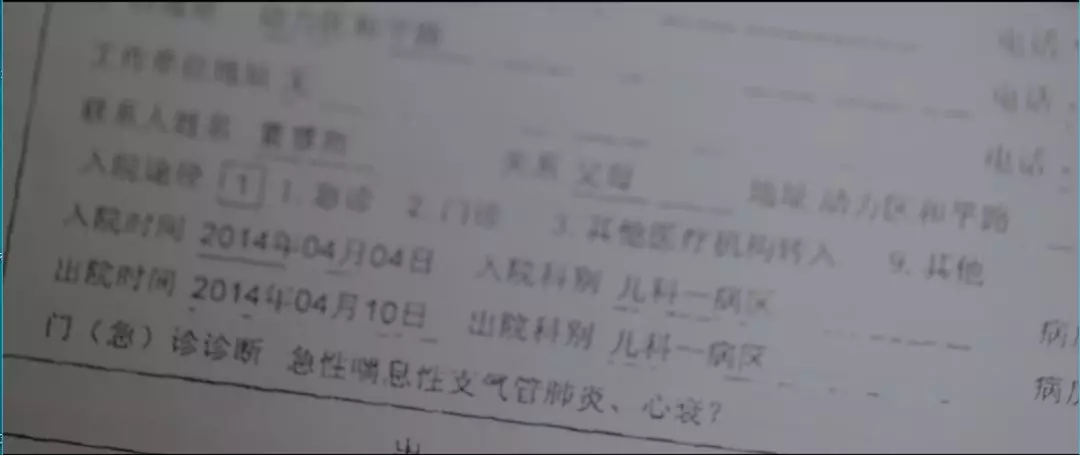 动力区和平路 电话
工作单位地址 无 电话：
联系人姓名 关系 父母 地址 动力区和平路 电话：
入院途径 1 1. 急诊 2. 门诊 3. 其他医疗机构转入 9. 其他
入院时间 2014年04月04日 入院科别 儿科一病区 病
出院时间 2014年04月10日 出院科别 儿科一病区 病
门（急）诊诊断 急性喘息性支气管肺炎、心衰？
出